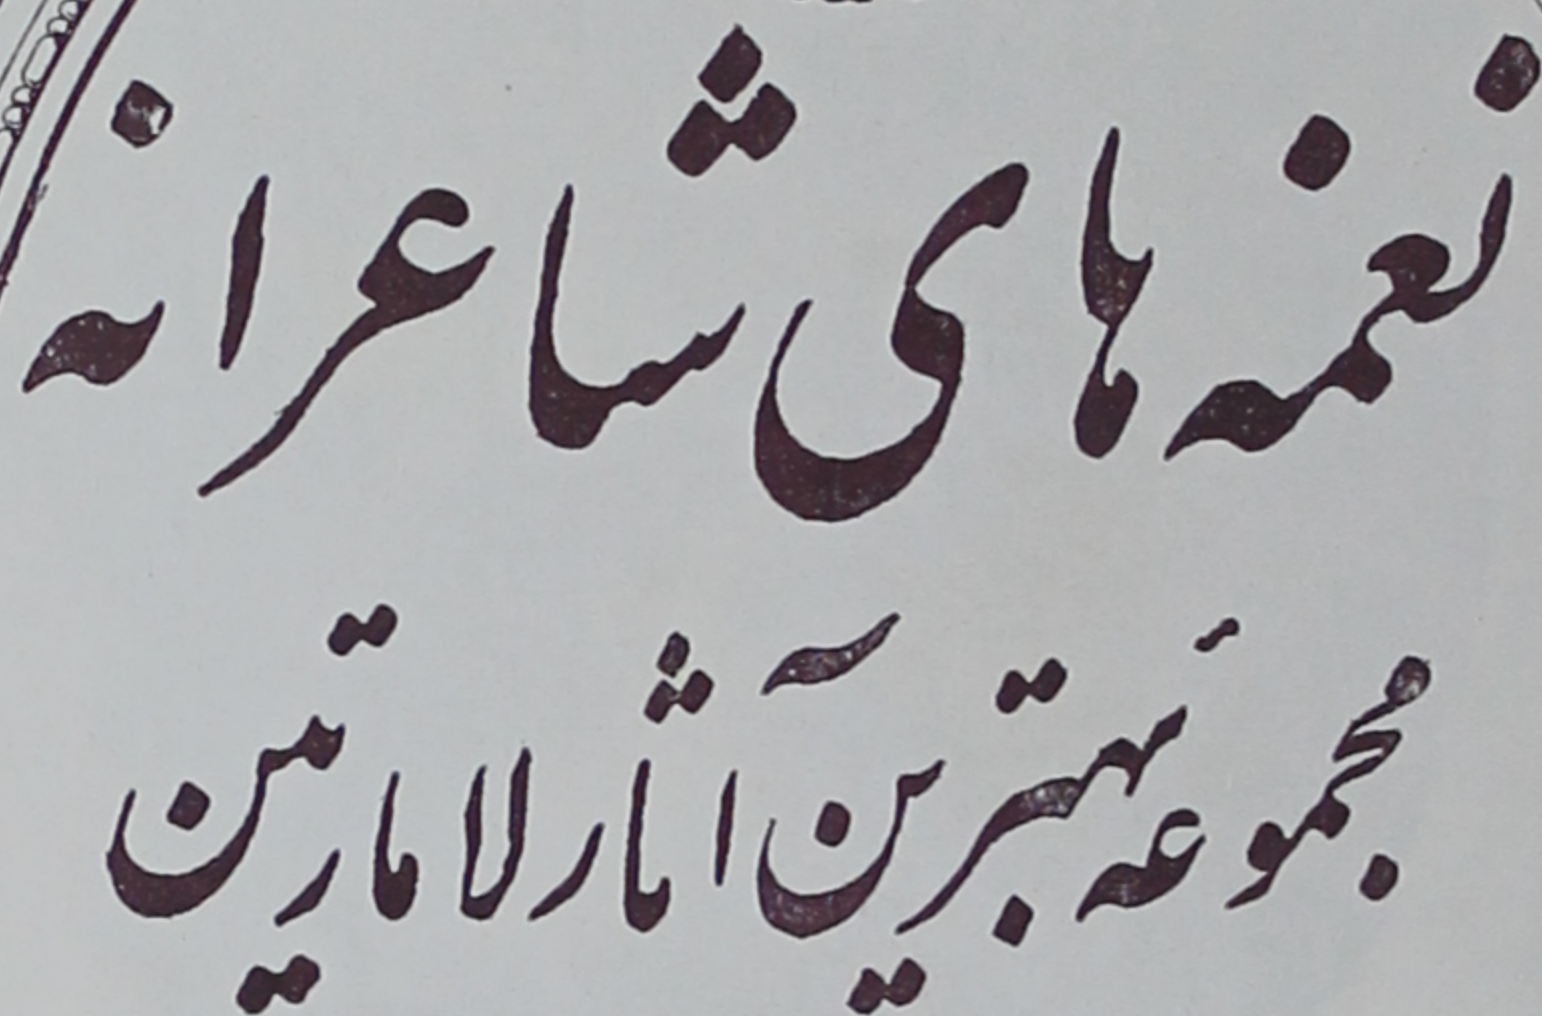 نغمه های شاعرانه
مجموعهٔ بهترین آثار لامارتین